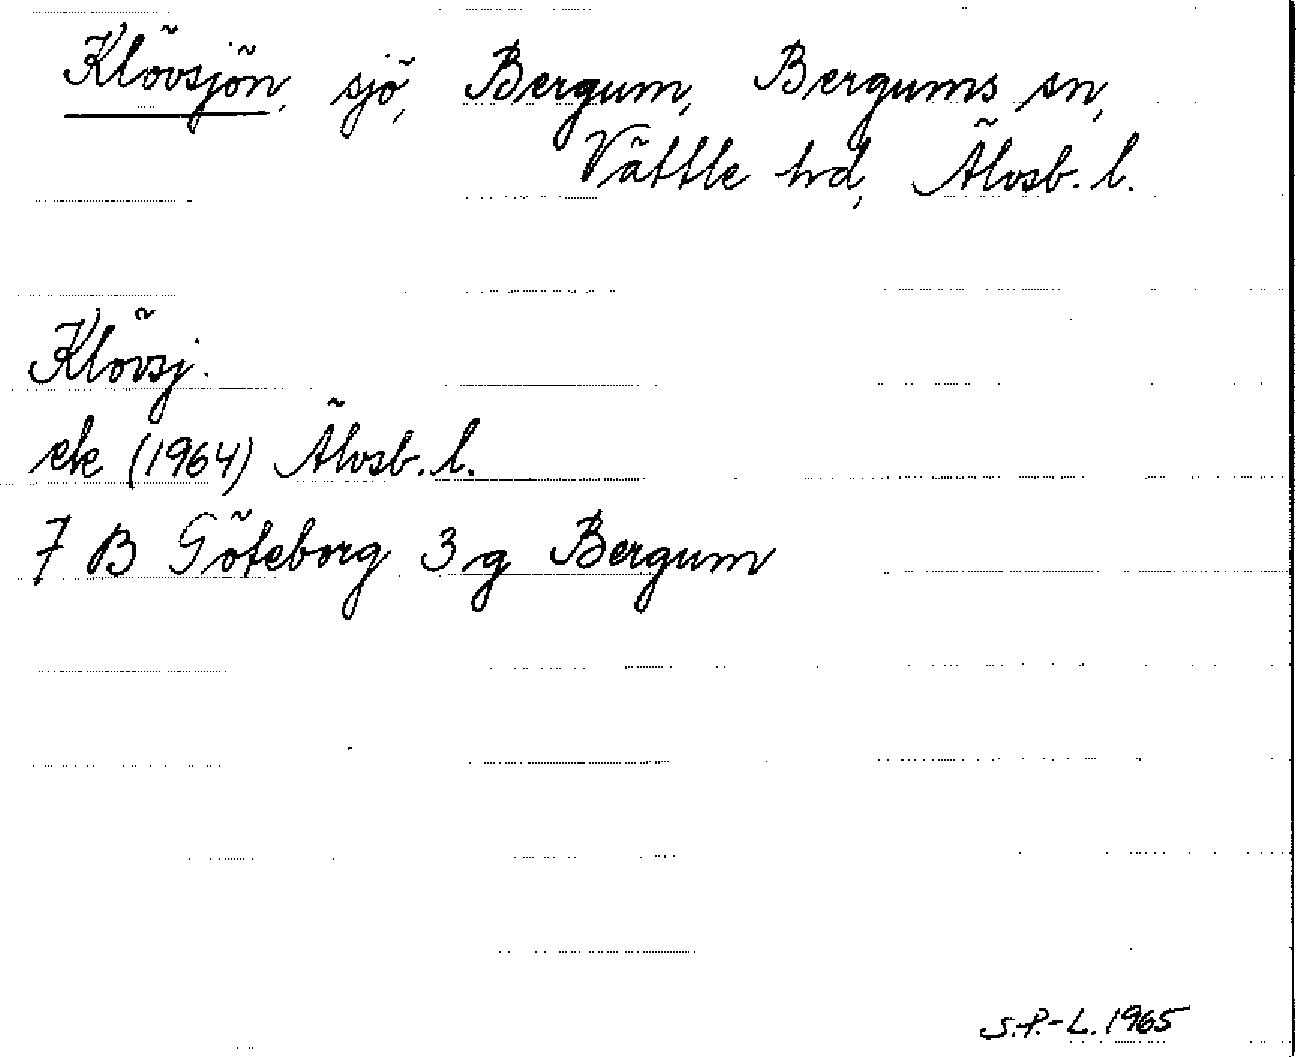 Klövsjön, sjö, Bergum, Bergums sn,
Vättle hd, Älvsb. l.
Klövsj.
ek (1964) Älvsb. l.
7 B Göteborg 3 g Bergum
S.P.-L. 1965